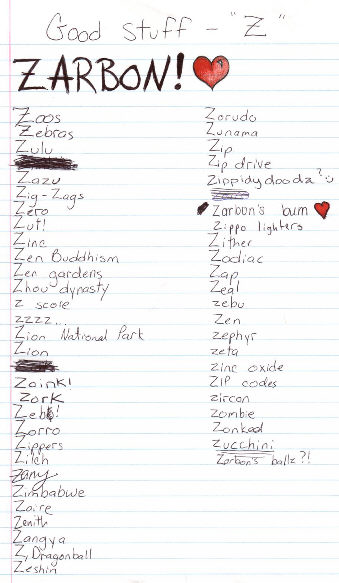 Good stuff - "Z"
ZARBON!
Zoos
Zebras
Zulu
Zazu
Zig-Zags
Zero
Zut!
Zinc
Zen Buddhism
Zen gardens
Zhou dynasty
z score
zzzz...
Zion National Park
Zion
Zoink!
Zork
Zorro
Zippers
Zilch
zany
Zimbabwe
Zaire
Zenith
Zangya
Z, Dragonball
Zeshin
Zorudo
Zunama
Zip
Zip drive
Zippidydooda?
Zarbon's bum
Zippo lighters
Zither
Zodiac
Zap
Zeal
zebu
Zen
zephyr
zeta
zinc oxide
ZIP codes
zircon
zombie
Zonked
Zucchini
Zarbon's ballz?!